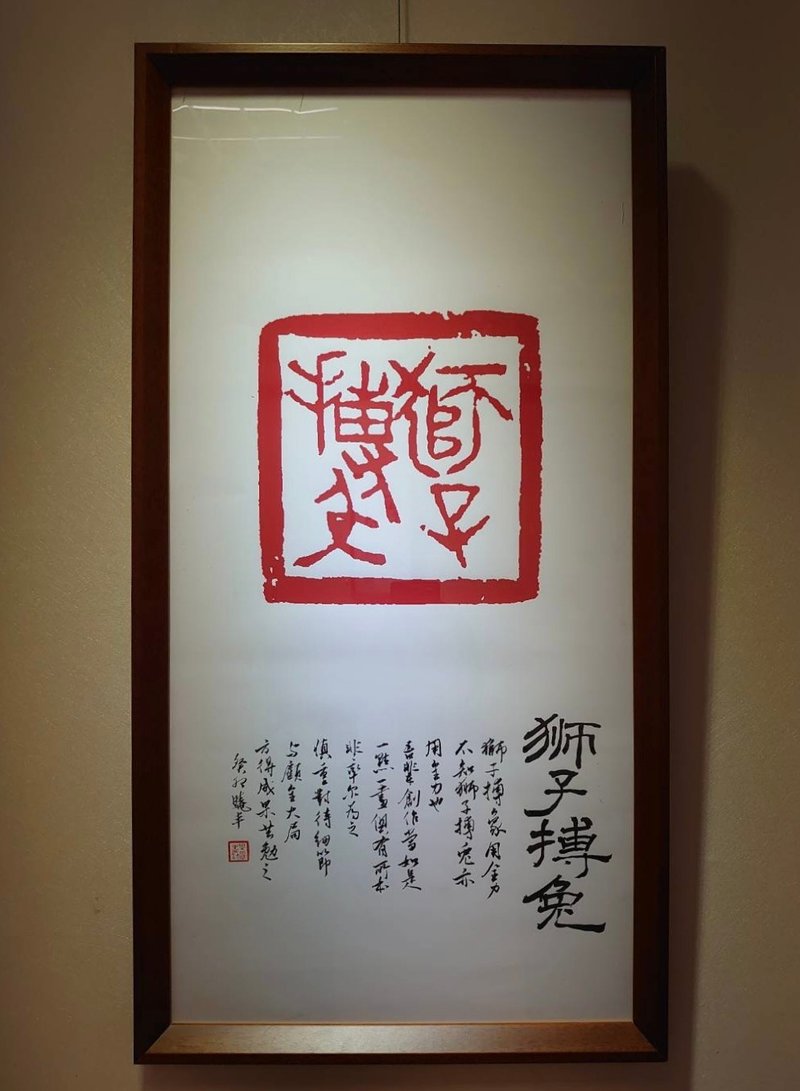 獅子
搏兔
狮子搏兔
狮子搏象用全力
不知狮子搏兔亦
用全力也
吾輩創作當如是
一點一畫俱有所本
非率尔為之
慎重對待細節
与顧全大局
方得成果共勉之
癸卯曉